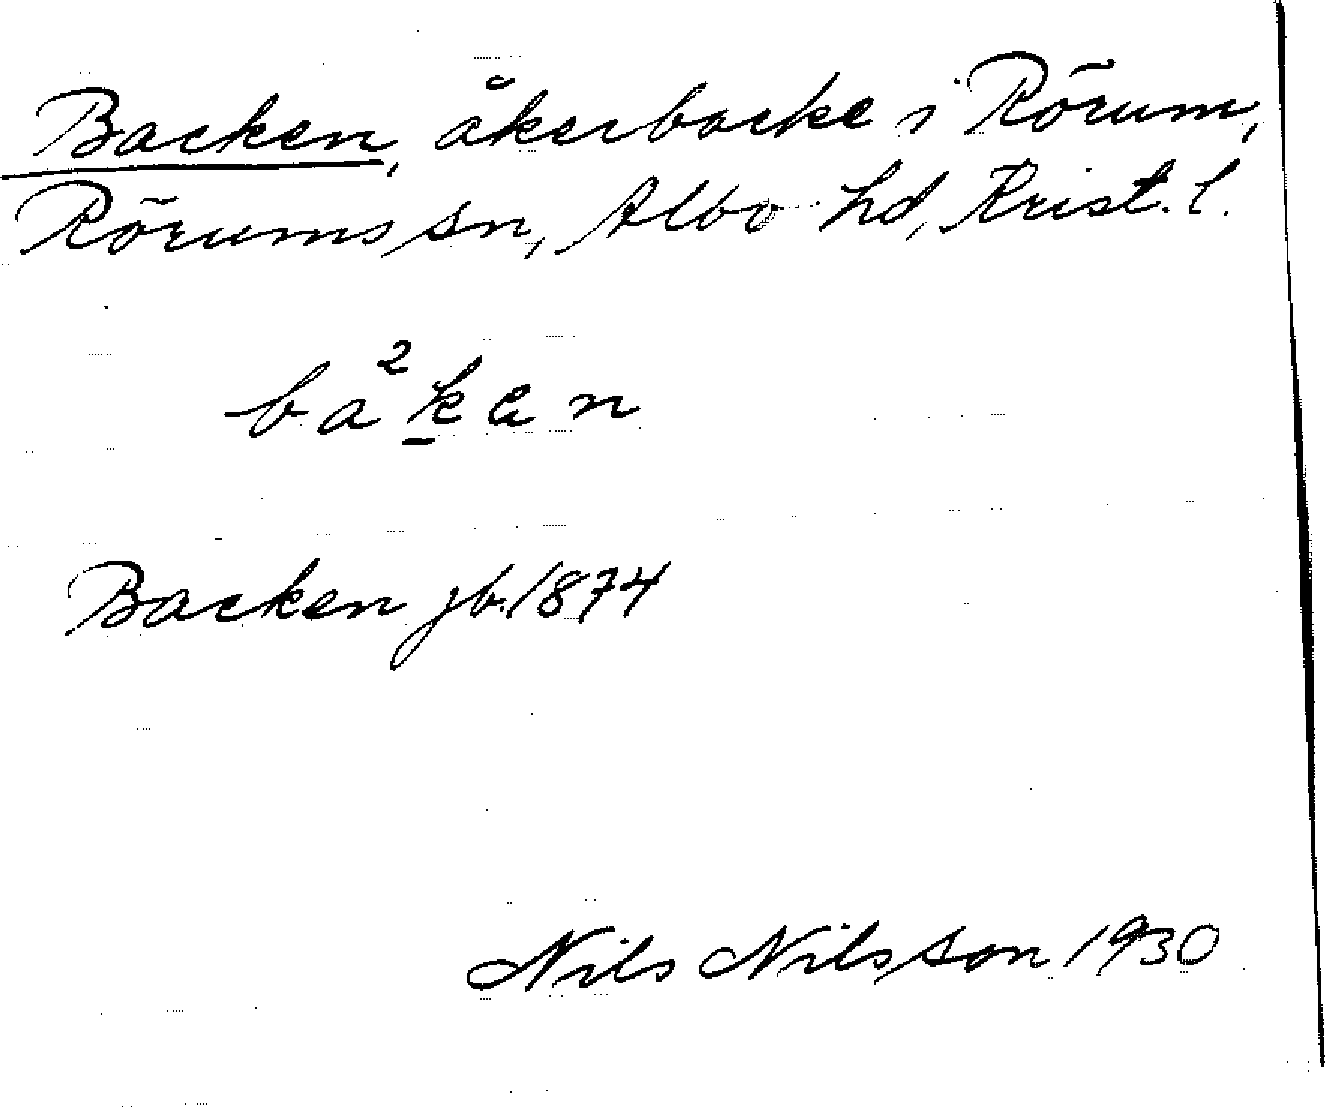 Backen, åkerbacke i Rörum,
Rörums sn, Albo hd, Krist. l.
ba²ḵen
Backen jb. 1874
Nils Nilsson 1930